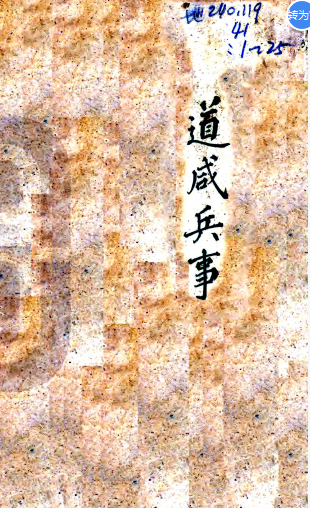 地240.119
41
:1-225
道咸兵事
转为